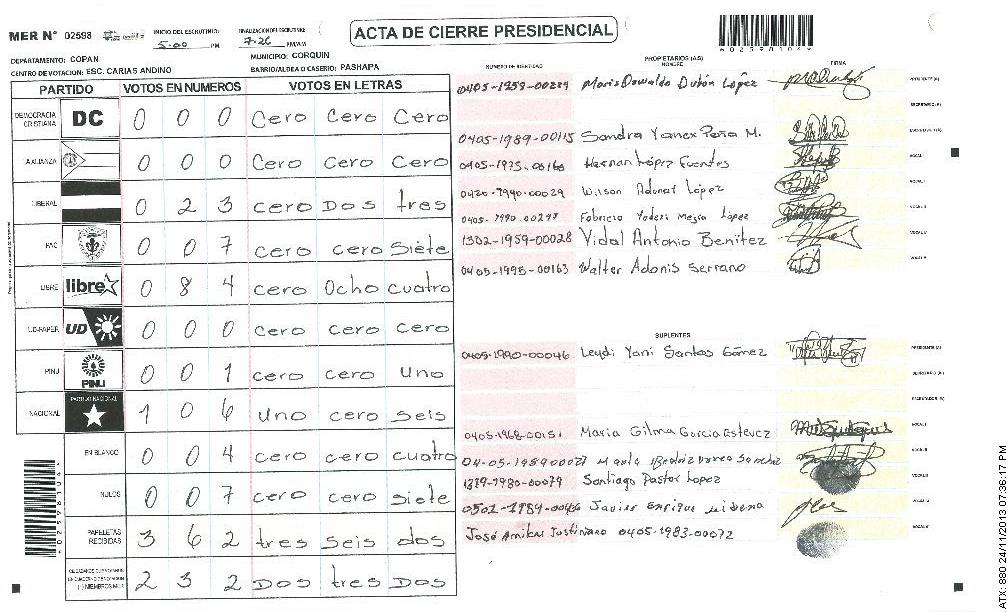 MER N° 02598
INICIO DEL ESCRUTINIO: 5:00 PM
FINALIZACION DEL ESCRUTINIO: 7:26 PM/AM
ACTA DE CIERRE PRESIDENCIAL
DEPARTAMENTO: COPAN
MUNICIPIO: CORQUIN
CENTRO DE VOTACION: ESC. CARIAS ANDINO
BARRIO/ALDEA O CASERIO: PASHAPA
PARTIDO VOTOS EN NUMEROS VOTOS EN LETRAS
DEMOCRACIA CRISTIANA DC 0 0 0 Cero Cero Cero
0 0 0 Cero Cero Cero
LIBERAL 0 2 3 cero Dos tres
PAC 0 0 7 cero cero Siete
LIBRE libre 0 8 4 cero Ocho cuatro
UD-FAPER UD 0 0 0 cero cero Cero
PINU PINU 0 0 1 cero cero uno
NACIONAL PARTIDO NACIONAL 1 0 6 uno cero seis
EN BLANCO 0 0 4 cero cero cuatro
NULOS 0 0 7 cero cero siete
PAPELETAS RECIBIDAS 3 6 2 tres seis dos
2 3 2 Dos tres Dos
NUMERO DE IDENTIDAD PROPIETARIOS (AS) NOMBRE FIRMA
0405-1959-00229 Maris Oswaldo Dubón López PRESIDENTE (A)
SECRETARIO (A)
0405-1989-00115 Sandra Yanex Peña M. ESCRUTADOR (A)
0405-1975-00166 Hernan López Fuentes VOCAL I
0420-1990-00029 Wilson Adonay López VOCAL II
0405-1990-00297 Fabricio López
1302-1959-00028 Vidal Antonio Benitez
0405-1995-00163 Walter Adonis Serrano
SUPLENTES
0405-1990-00046 Leydi Yani Santos Gómez PRESIDENTE (A)
SECRETARIO (A)
ESCRUTADOR (A)
0405-1968-00151 Maria Gilma Garcia Estevez VOCAL I
04-05-1989000
1319-1980-00079 Santiago Pastor Lopez
Javier Enrique
José Amilcar Justiniano 0405-1983-00072
ATX: 880 24/11/2013 07:36:17 PM